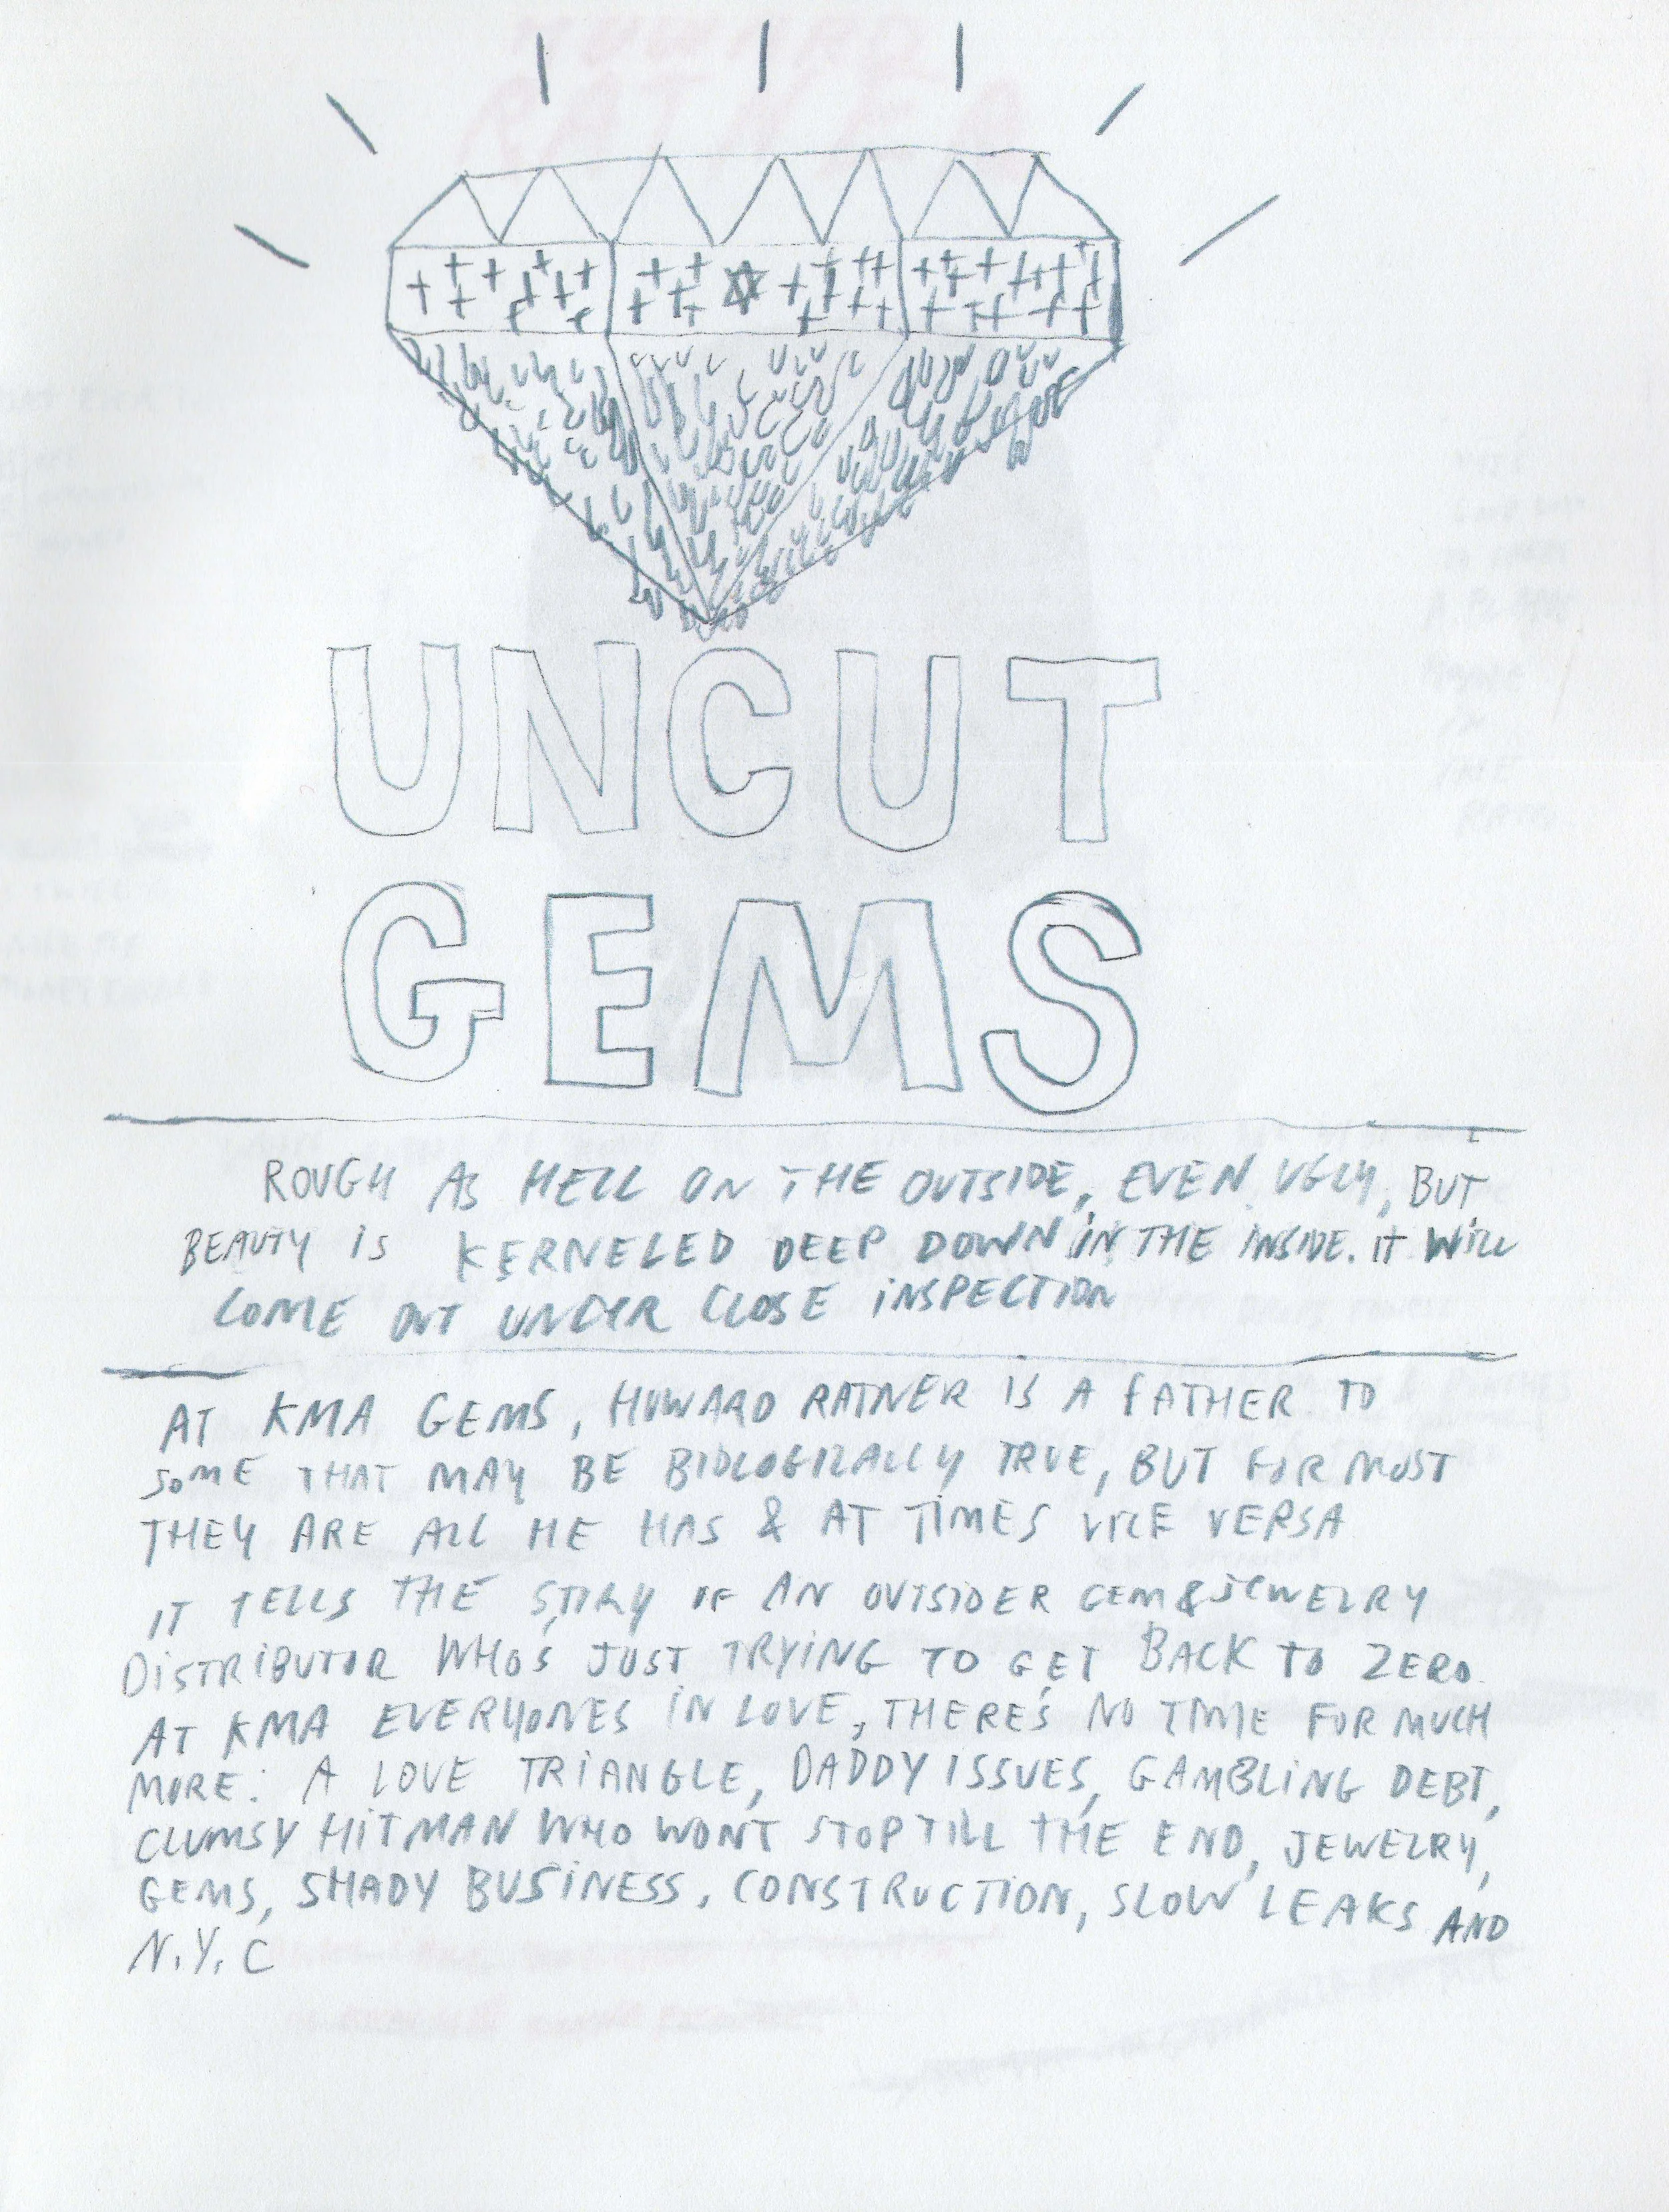 UNCUT
GEMS
ROUGH AS HELL ON THE OUTSIDE, EVEN UGLY, BUT
BEAUTY IS KERNELED DEEP DOWN IN THE INSIDE. IT WILL
COME OUT UNDER CLOSE INSPECTION
AT KMA GEMS, HOWARD RATNER IS A FATHER TO
SOME THAT MAY BE BIOLOGICALLY TRUE, BUT FOR MOST
THEY ARE ALL HE HAS & AT TIMES VICE VERSA
IT TELLS THE STORY OF AN OUTSIDER GEM & JEWELRY
DISTRIBUTOR WHO'S JUST TRYING TO GET BACK TO ZERO.
AT KMA EVERYONES IN LOVE, THERE'S NO TIME FOR MUCH
MORE: A LOVE TRIANGLE, DADDY ISSUES, GAMBLING DEBT,
CLUMSY HITMAN WHO WONT STOP TILL THE END, JEWELRY,
GEMS, SHADY BUSINESS, CONSTRUCTION, SLOW LEAKS AND
N.Y.C